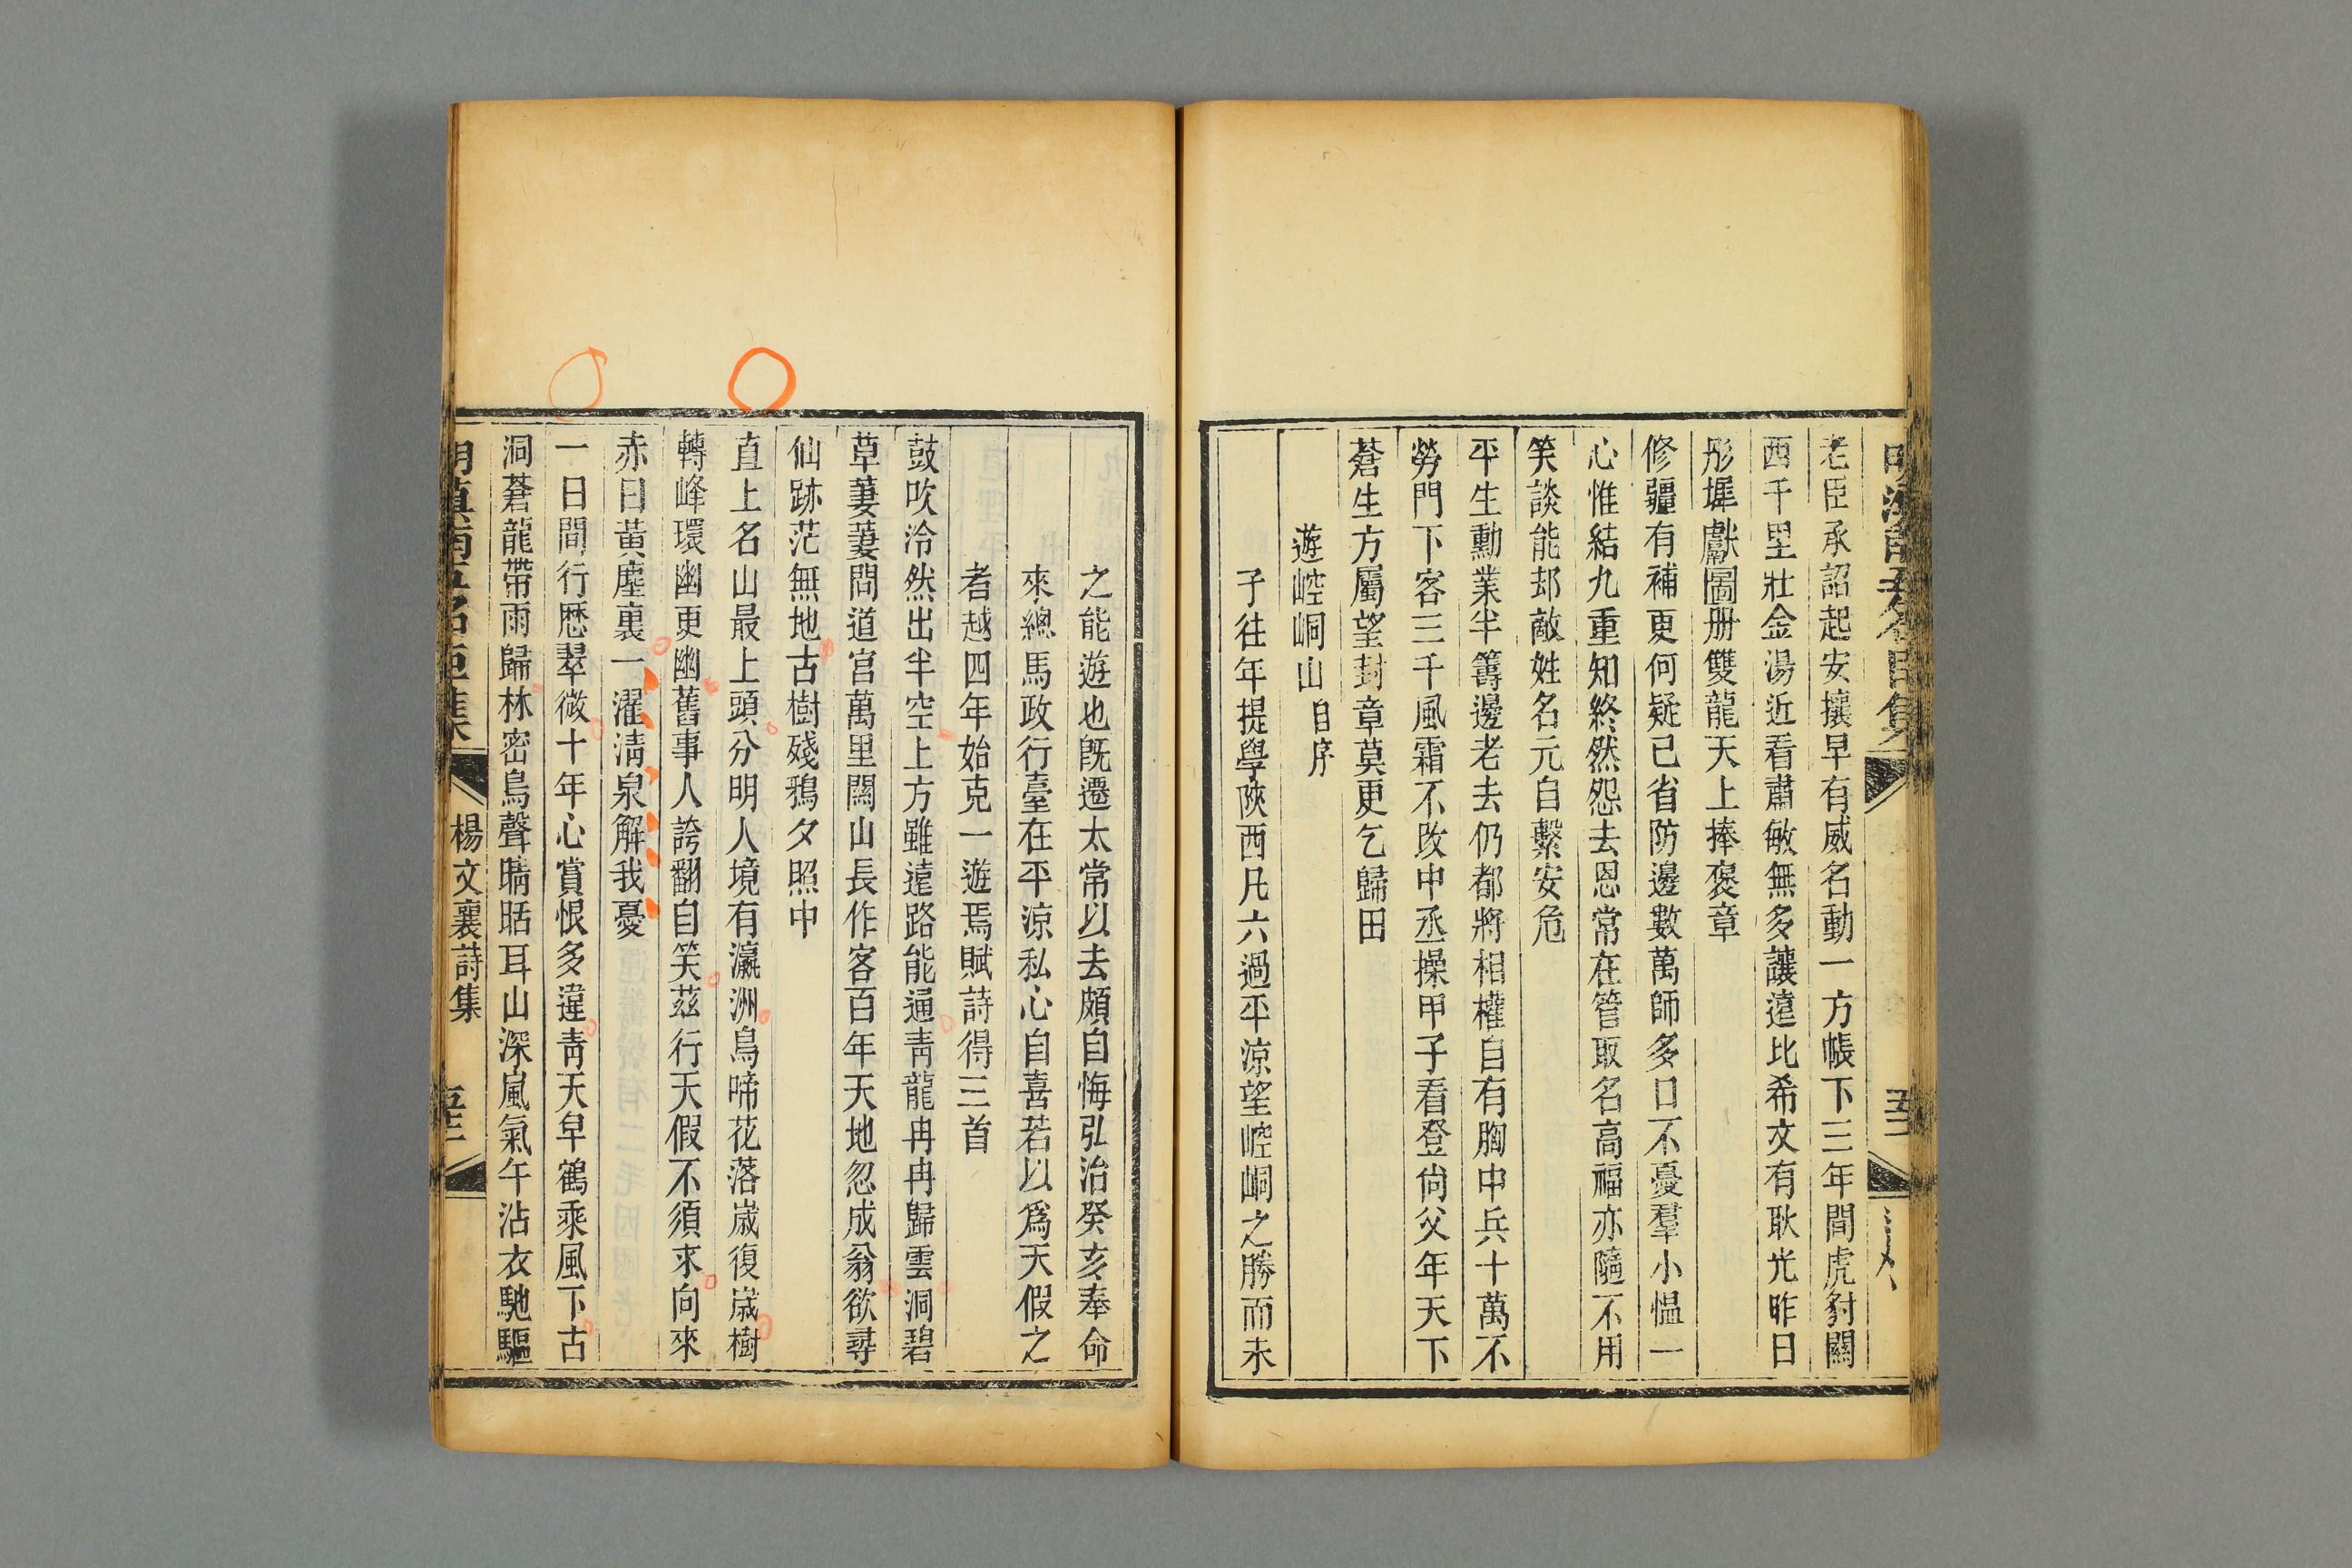 老臣承詔起安攘早有威名動一方帳下三年間虎豺關
西千里壯金湯近看肅敏無多讓遠比希文有耿光昨日
彤墀獻圖册雙龍天上捧褒章
修疆有補更何疑已省防邊數萬師多口不憂羣小慍一
心惟結九重知終然怨去恩常在管取名高福亦隨不用
笑談能却敵姓名元自繫安危
平生勳業半籌邊老去仍都將相權自有胸中兵十萬不
勞門下客三千風霜不改中丞操甲子看登尙父年天下
蒼生方屬望封章莫更乞歸田
遊崆峒山自序
子往年提學陝西凡六過平涼望崆峒之勝而未
之能遊也旣遷太常以去頗自悔弘治癸亥奉命
來總馬政行臺在平涼私心自喜若以爲天假之
者越四年始克一遊焉賦詩得三首
鼓吹泠然出半空上方雖遠路能通靑龍冉冉歸雲洞碧
草萋萋問道宮萬里關山長作客百年天地忽成翁欲尋
仙跡茫無地古樹殘鴉夕照中
直上名山最上頭分明人境有瀛洲鳥啼花落歲復歲樹
轉峰環幽更幽舊事人誇翻自笑茲行天假不須求向來
赤日黃塵裏一濯淸泉解我憂
一日間行歷翠微十年心賞恨多違靑天早鶴乘風下古
洞蒼龍帶雨歸林密鳥聲晴聒耳山深嵐氣午沾衣馳驅
楊文襄詩集